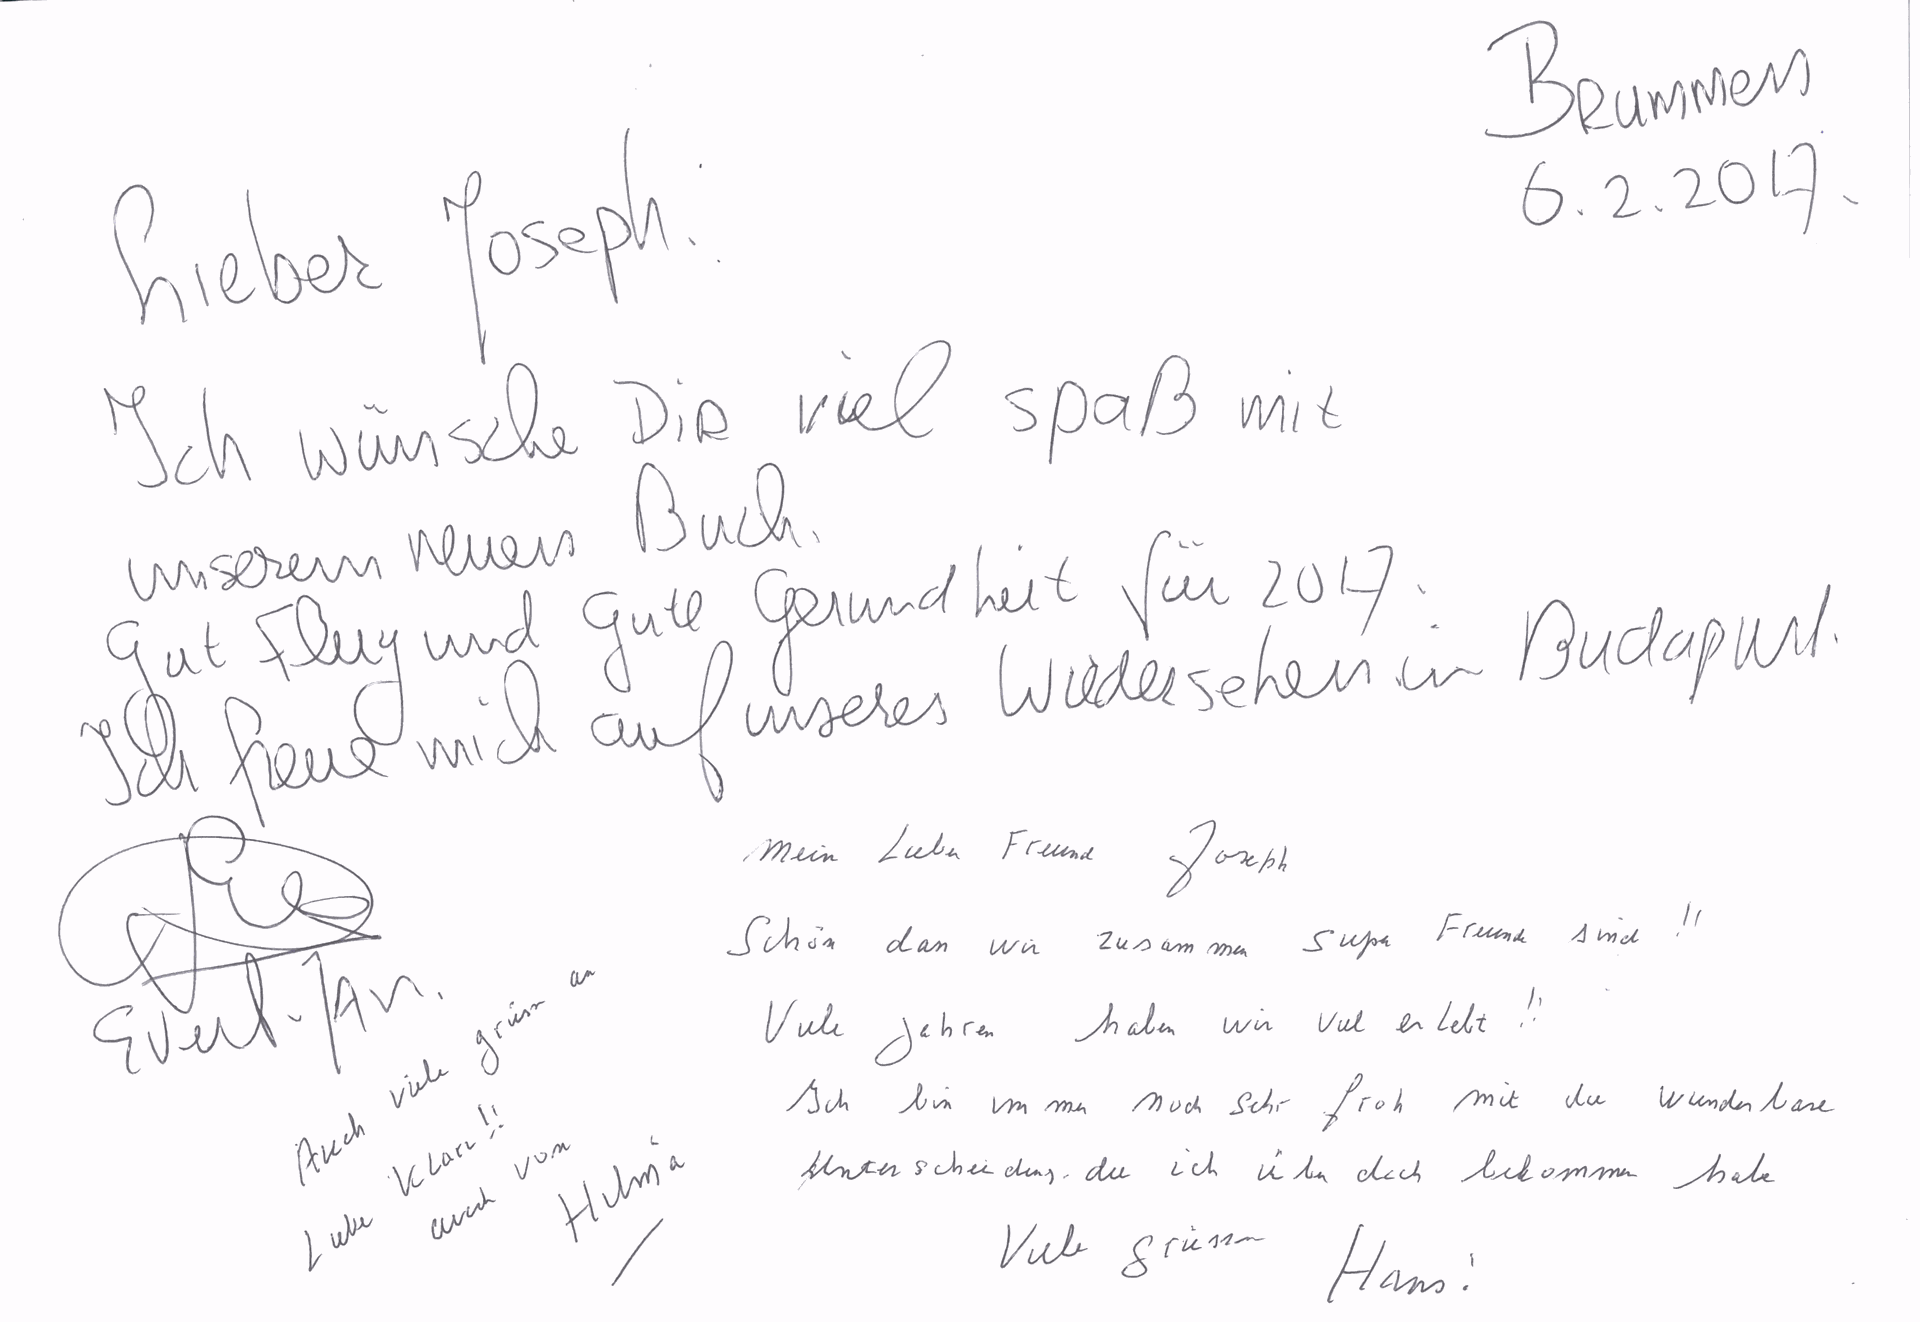 Brummen
6.2.2017.
Lieber Joseph.
Ich wünsche Dir viel spaß mit
unserem neuen Buch.
Gut Flug und Gute Gesundheit für 2017.
Ich freue mich auf unseres Wiedersehen in Budapest.
Evert-Jan.
Mein Lieber Freund Joseph
Schön dan wir zusammen super Freunde sind!!
Viele jahren haben wir viel erlebt!!
Ich bin immer noch sehr froh mit die wunderbare
Unterscheidung die ich über dich bekommen habe
Viele grüssen Hans!
Auch viele grüssen an
Liebe Klara!!
auch von